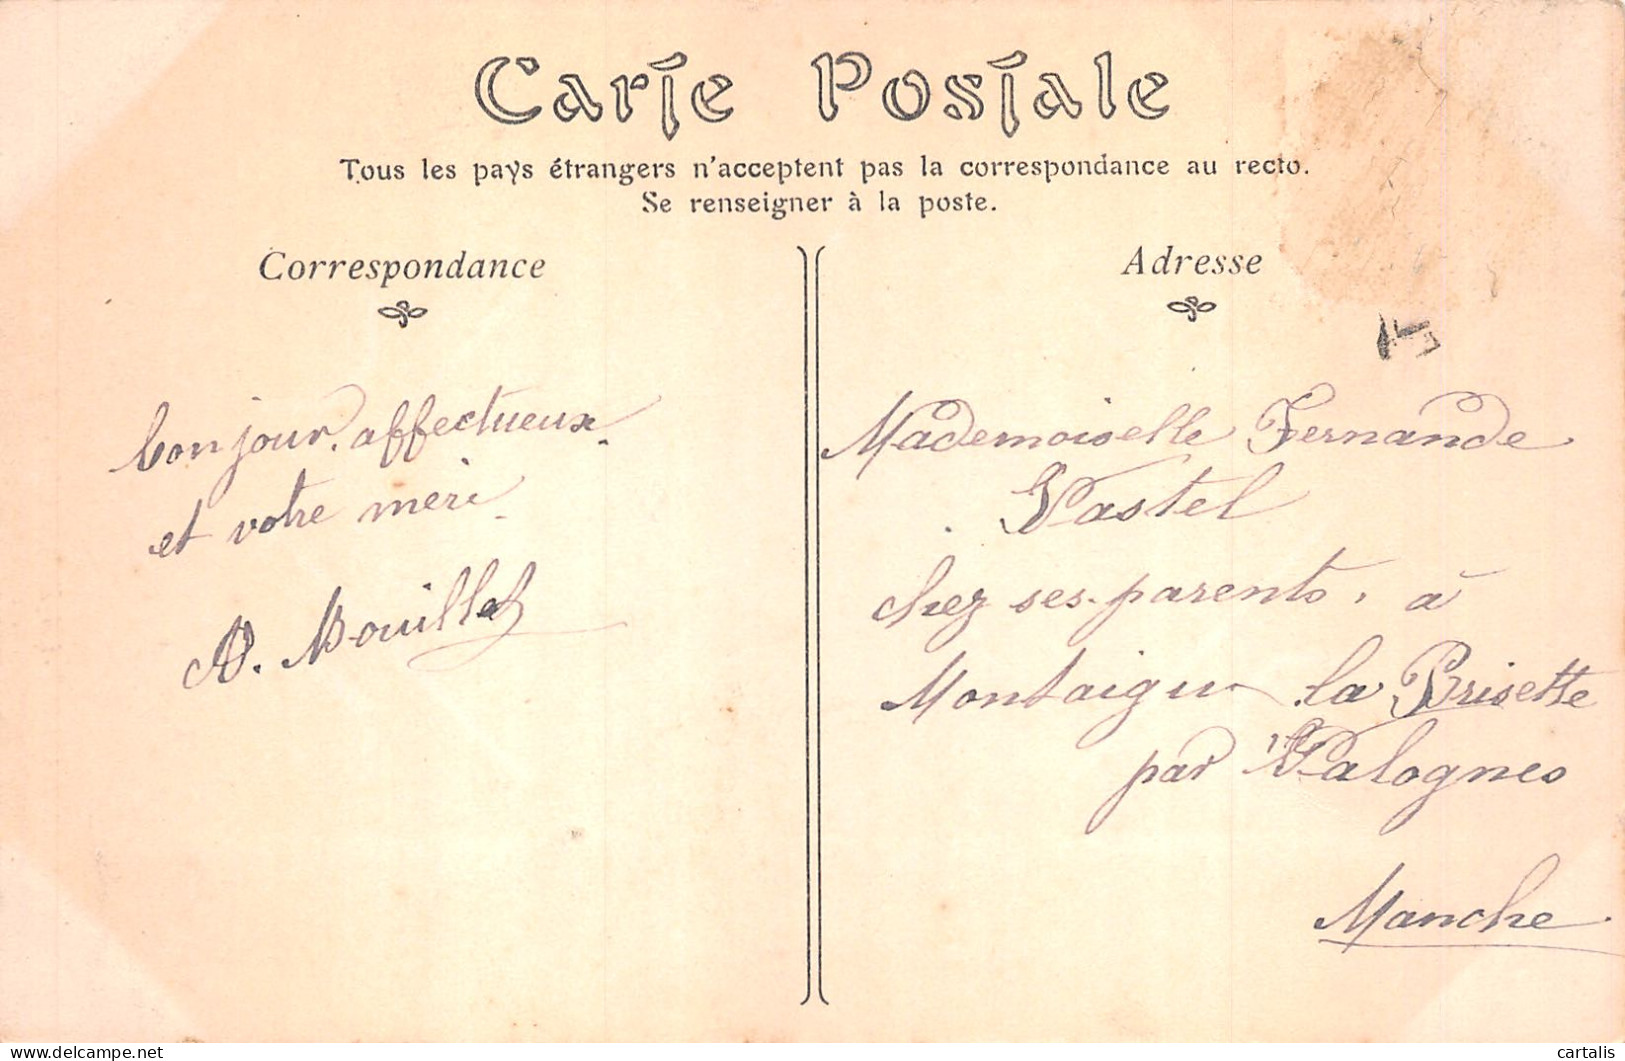 Carte Postale
Tous les pays étrangers n'acceptent pas la correspondance au recto.
Se renseigner à la poste.
Correspondance
Adresse
bonjour affectueux
et votre meri
A. Bouillet
Mademoiselle Fernande
Vastel
chez ses parents, à
Montaigu la Brisette
par Valognes
Manche
delcampe.net
cartalis